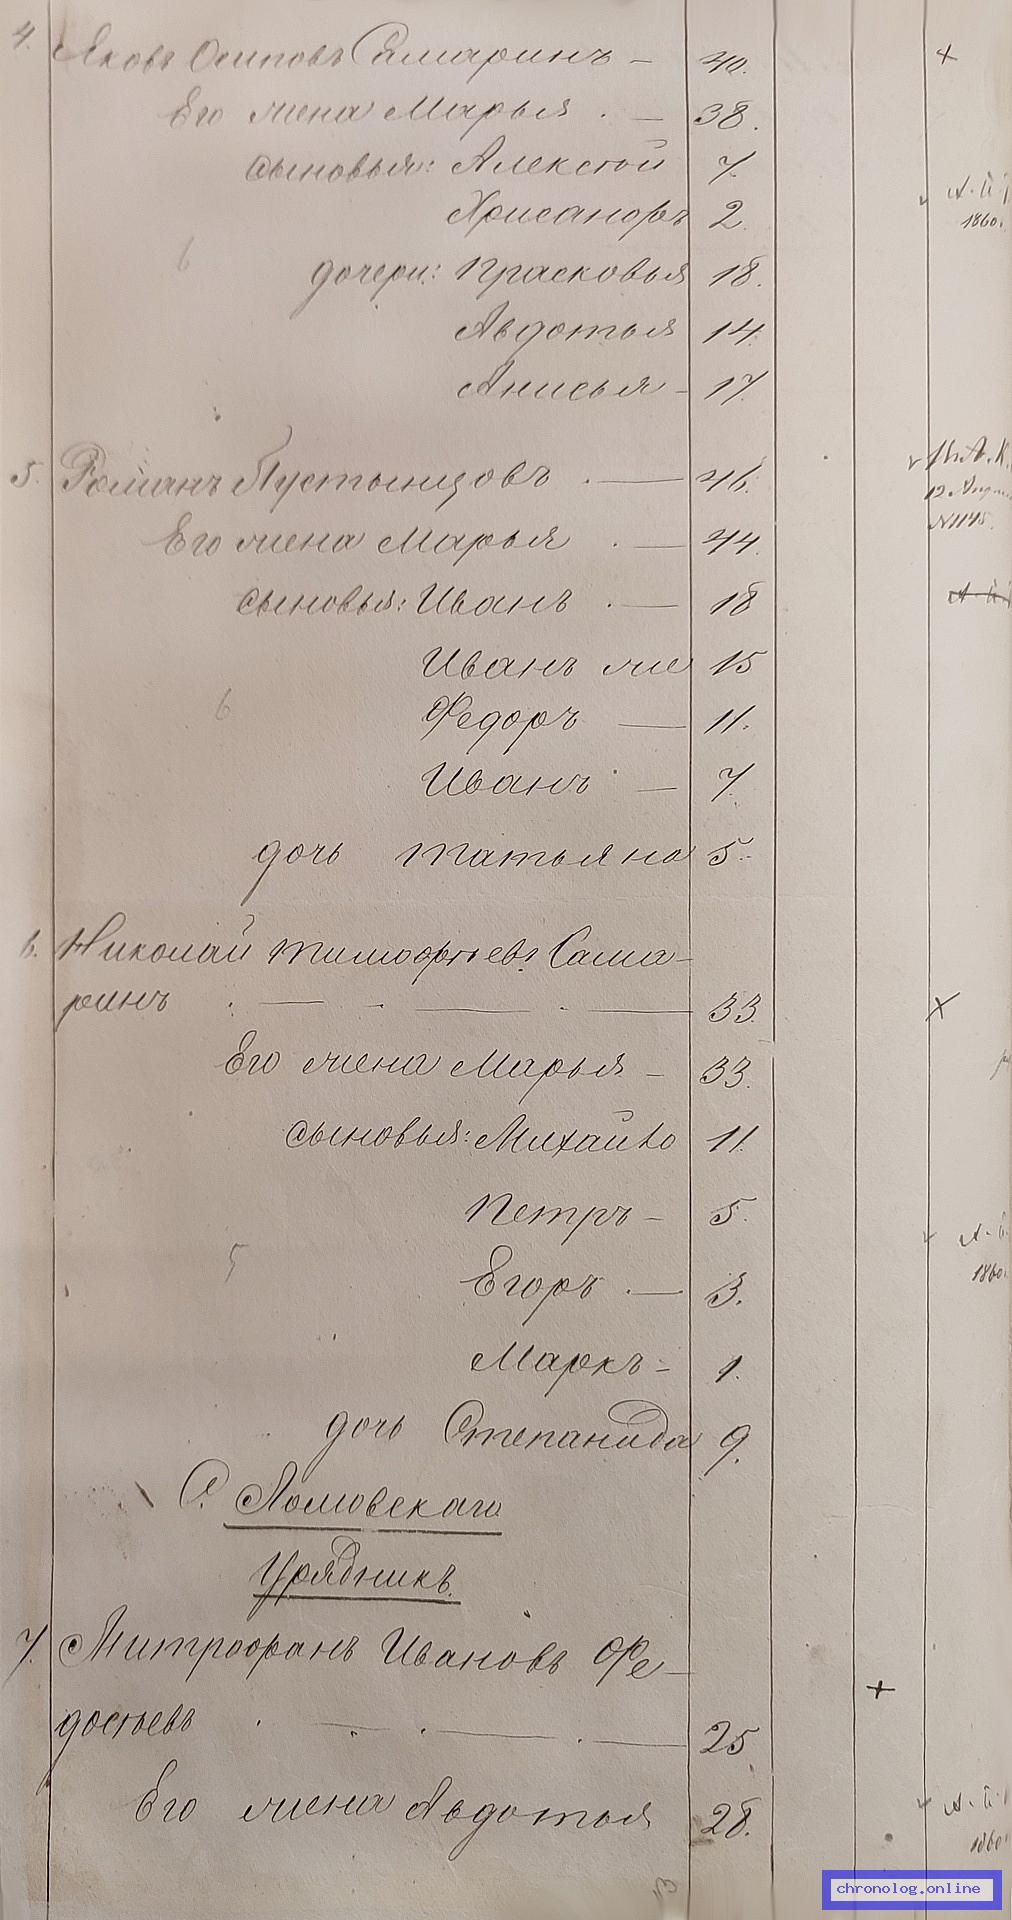 4. Яковъ Осиповъ Самаринъ — 40.
Его жена Марья . — 38.
сыновья: Алексѣй 7.
Хрисанфъ 2.
6
1860.
дочери: Прасковья 18.
Авдотья 14.
Анисья - 17.
5. Романъ Пустынцовъ . — 46.
Его жена Марья . — 44.
№1145.
сыновья: Иванъ . — 18
Иванъ же 15
6
Федоръ — 11.
Иванъ — 7.
дочь Татьяна 5.
6. Николай Тимофѣевъ Сама-
ринъ . — . — . — 33.
Его жена Марья — 33.
сыновья: Михайло 11.
Петръ — 5.
5
1860.
Егоръ . — 3.
Маркъ - 1.
дочь Степанида 9.
С. Ломовскаго
Урядникъ.
7. Митрофанъ Ивановъ Фе-
достьевъ . — . — . — 25.
Его жена Авдотья 28.
1860
13
chronolog.online